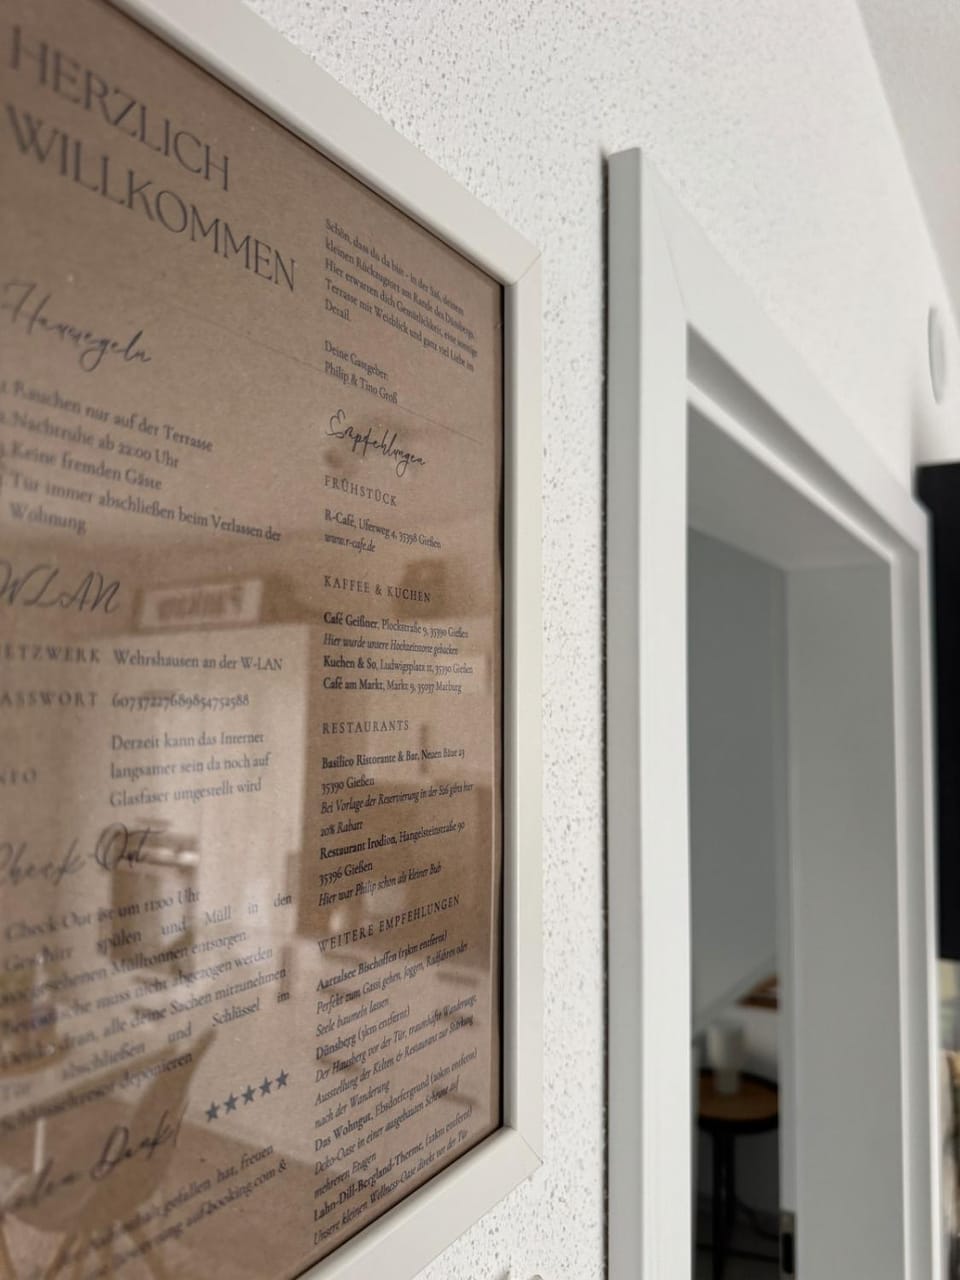 HERZLICH
WILLKOMMEN
Hausregeln
1. Rauchen nur auf der Terrasse
2. Nachtruhe ab 22:00 Uhr
3. Keine fremden Gäste
4. Tür immer abschließen beim Verlassen der
Wohnung
WLAN
NETZWERK Wehrshausen an der W-LAN
PASSWORT
Derzeit kann das Internet
INFO langsamer sein da noch auf
Glasfaser umgestellt wird
Check-Out
Check-Out ist um 11:00 Uhr
Geschirr spülen und Müll in den
vorgesehenen Mülltonnen entsorgen
Bettwäsche muss nicht abgezogen werden
alle deine Sachen mitzunehmen
Tür abschließen und Schlüssel im
deponieren
Dank!
★★★★★
gefallen hat, freuen
auf booking.com &
Schön, dass du da bist - in der S26, deinem
kleinen Rückzugsort am Rande des Dünsbergs.
Hier erwarten dich Gemütlichkeit, eine sonnige
Terrasse mit Weitblick und ganz viel Liebe im
Detail.
Deine Gastgeber:
Philip & Tino Groß
Empfehlungen
FRÜHSTÜCK
R-Café, Uferweg 4, 35398 Gießen
www.r-cafe.de
KAFFEE & KUCHEN
Café Geißner, Plockstraße 9, 35390 Gießen
Hier wurde unsere Hochzeitstorte gebacken
Kuchen & So, Ludwigsplatz 11, 35390 Gießen
Café am Markt, Markt 9, 35037 Marburg
RESTAURANTS
Basilico Ristorante & Bar, Neuen Bäue 23
35390 Gießen
Bei Vorlage der Reservierung in der S26 gibts hier
20% Rabatt
Restaurant Irodion, Hangelsteinstraße 90
35396 Gießen
Hier war Philip schon als kleiner Bub
WEITERE EMPFEHLUNGEN
Aartalsee Bischoffen (13km entfernt)
Perfekt zum Gassi gehen, Joggen, Radfahren oder
Seele baumeln lassen
Dünsberg (3km entfernt)
Der Hausberg vor der Tür, traumhafte Wanderwege,
Ausstellung der Kelten & Restaurant zur Stärkung
nach der Wanderung
Das Wohngut, Ebsdorfergrund (20km entfernt)
Deko-Oase in einer ausgebauten Scheune auf
mehreren Etagen
Lahn-Dill-Bergland-Therme, (12km entfernt)
Unsere kleinen Wellness-Oase direkt vor der Tür